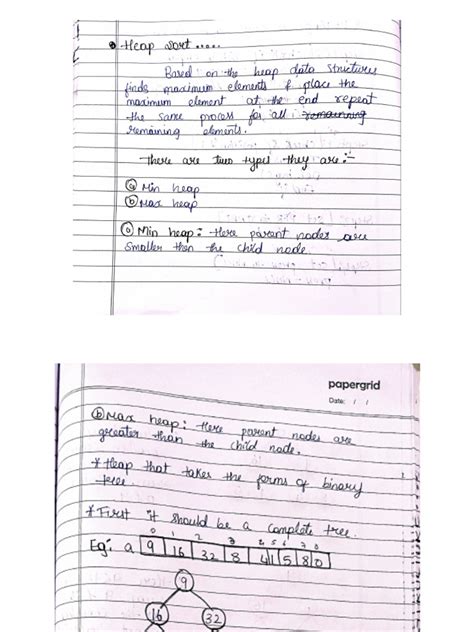 Heap sort .....
Based on the heap data structures
finds maximum elements & place the
maximum element at the end repeat
the same process for all remaining
remaining elements.
there are two types they are:-
(a) Min heap
(b) Max heap
(a) Min heap: Here parent nodes are
smaller then the child node.
papergrid
Date: / /
(b) Max heap: Here parent nodes are
greater than the child node.
* Heap that takes the forms of binary
tree.
* First it should be a complete tree.
0 1 2 3
Eg: a 9 16 32 8
9
16 32